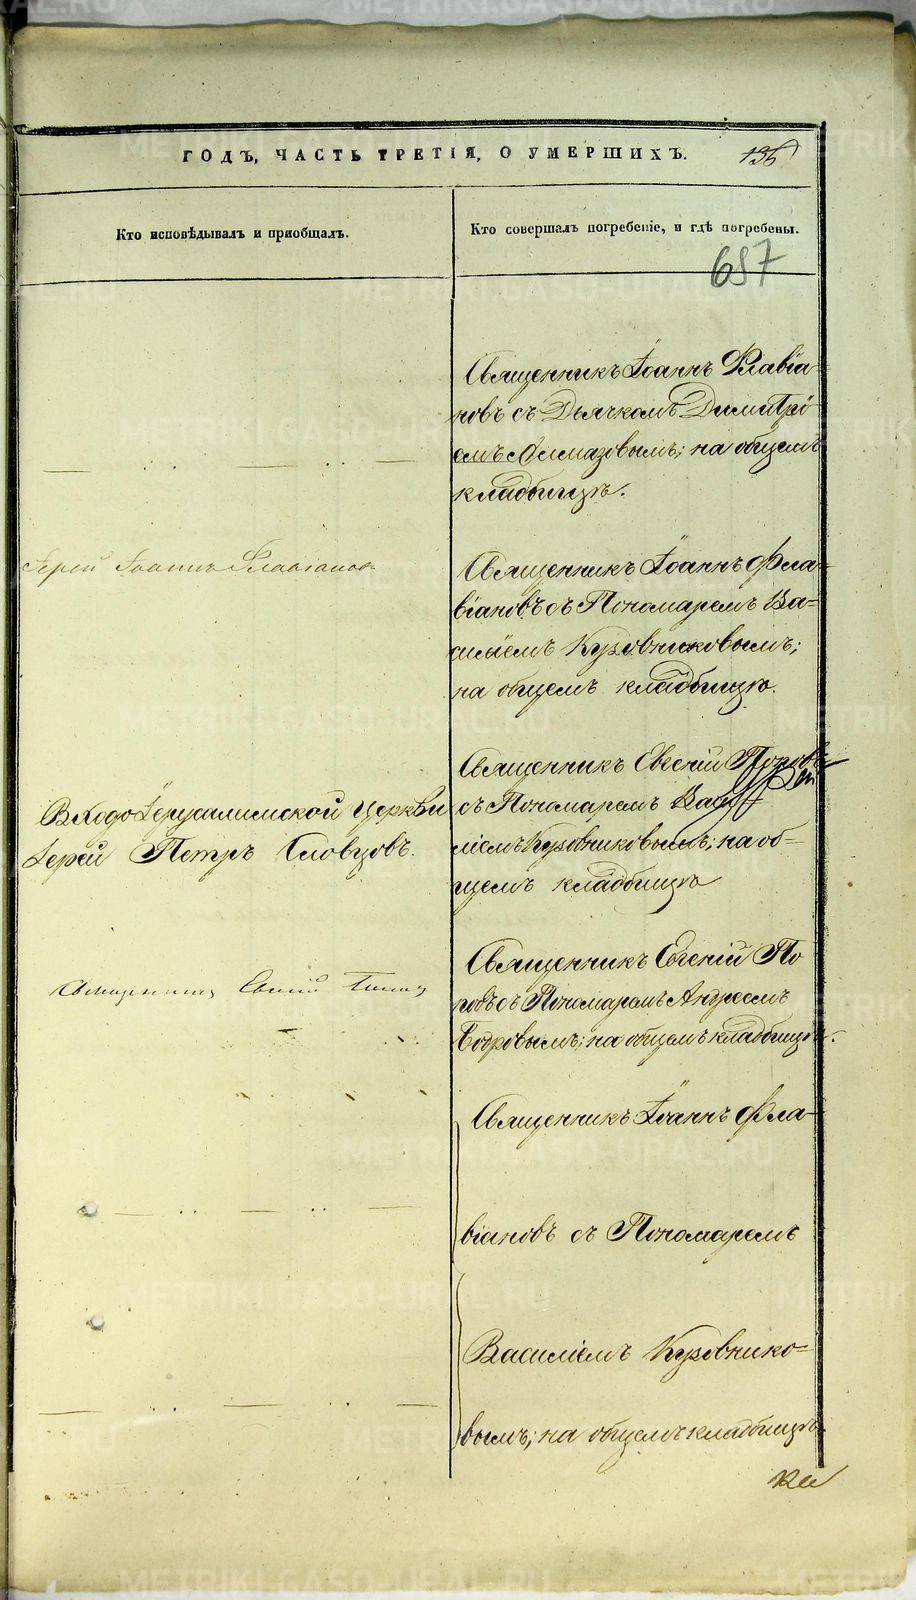 ГОДЪ, ЧАСТЬ ТРЕТІЯ, О УМЕРШИХЪ.
136
Кто исповѣдывалъ и пріобщалъ.
Кто совершалъ погребеніе, и гдѣ погребены.
657
Священникъ Іоаннъ Флавіа-
новъ съ Дьячкомъ Димитрі-
емъ Алмазовымъ; на общемъ
кладбищѣ.
Іерей Іоаннъ Флавіановъ
Священникъ Іоаннъ Фла-
віановъ съ Пономаремъ Ва-
силіемъ Кузовниковымъ;
на общемъ кладбищѣ.
Входоіерусалимской церкви
Іерей Петръ Словцовъ.
Священникъ Евгеній Поповъ
съ Пономаремъ Васи-
ліемъ Кузовниковымъ; на об-
щемъ кладбищѣ
Священникъ Евгеній Поповъ
Священникъ Евгеній По-
повъ съ Пономаремъ Андреемъ
на общемъ кладбищѣ.
Священникъ Іоаннъ Фла-
віановъ съ Пономаремъ
Василіемъ Кузовнико-
вымъ; на общемъ кладбищѣ
METRIKI.GASO-URAL.RU